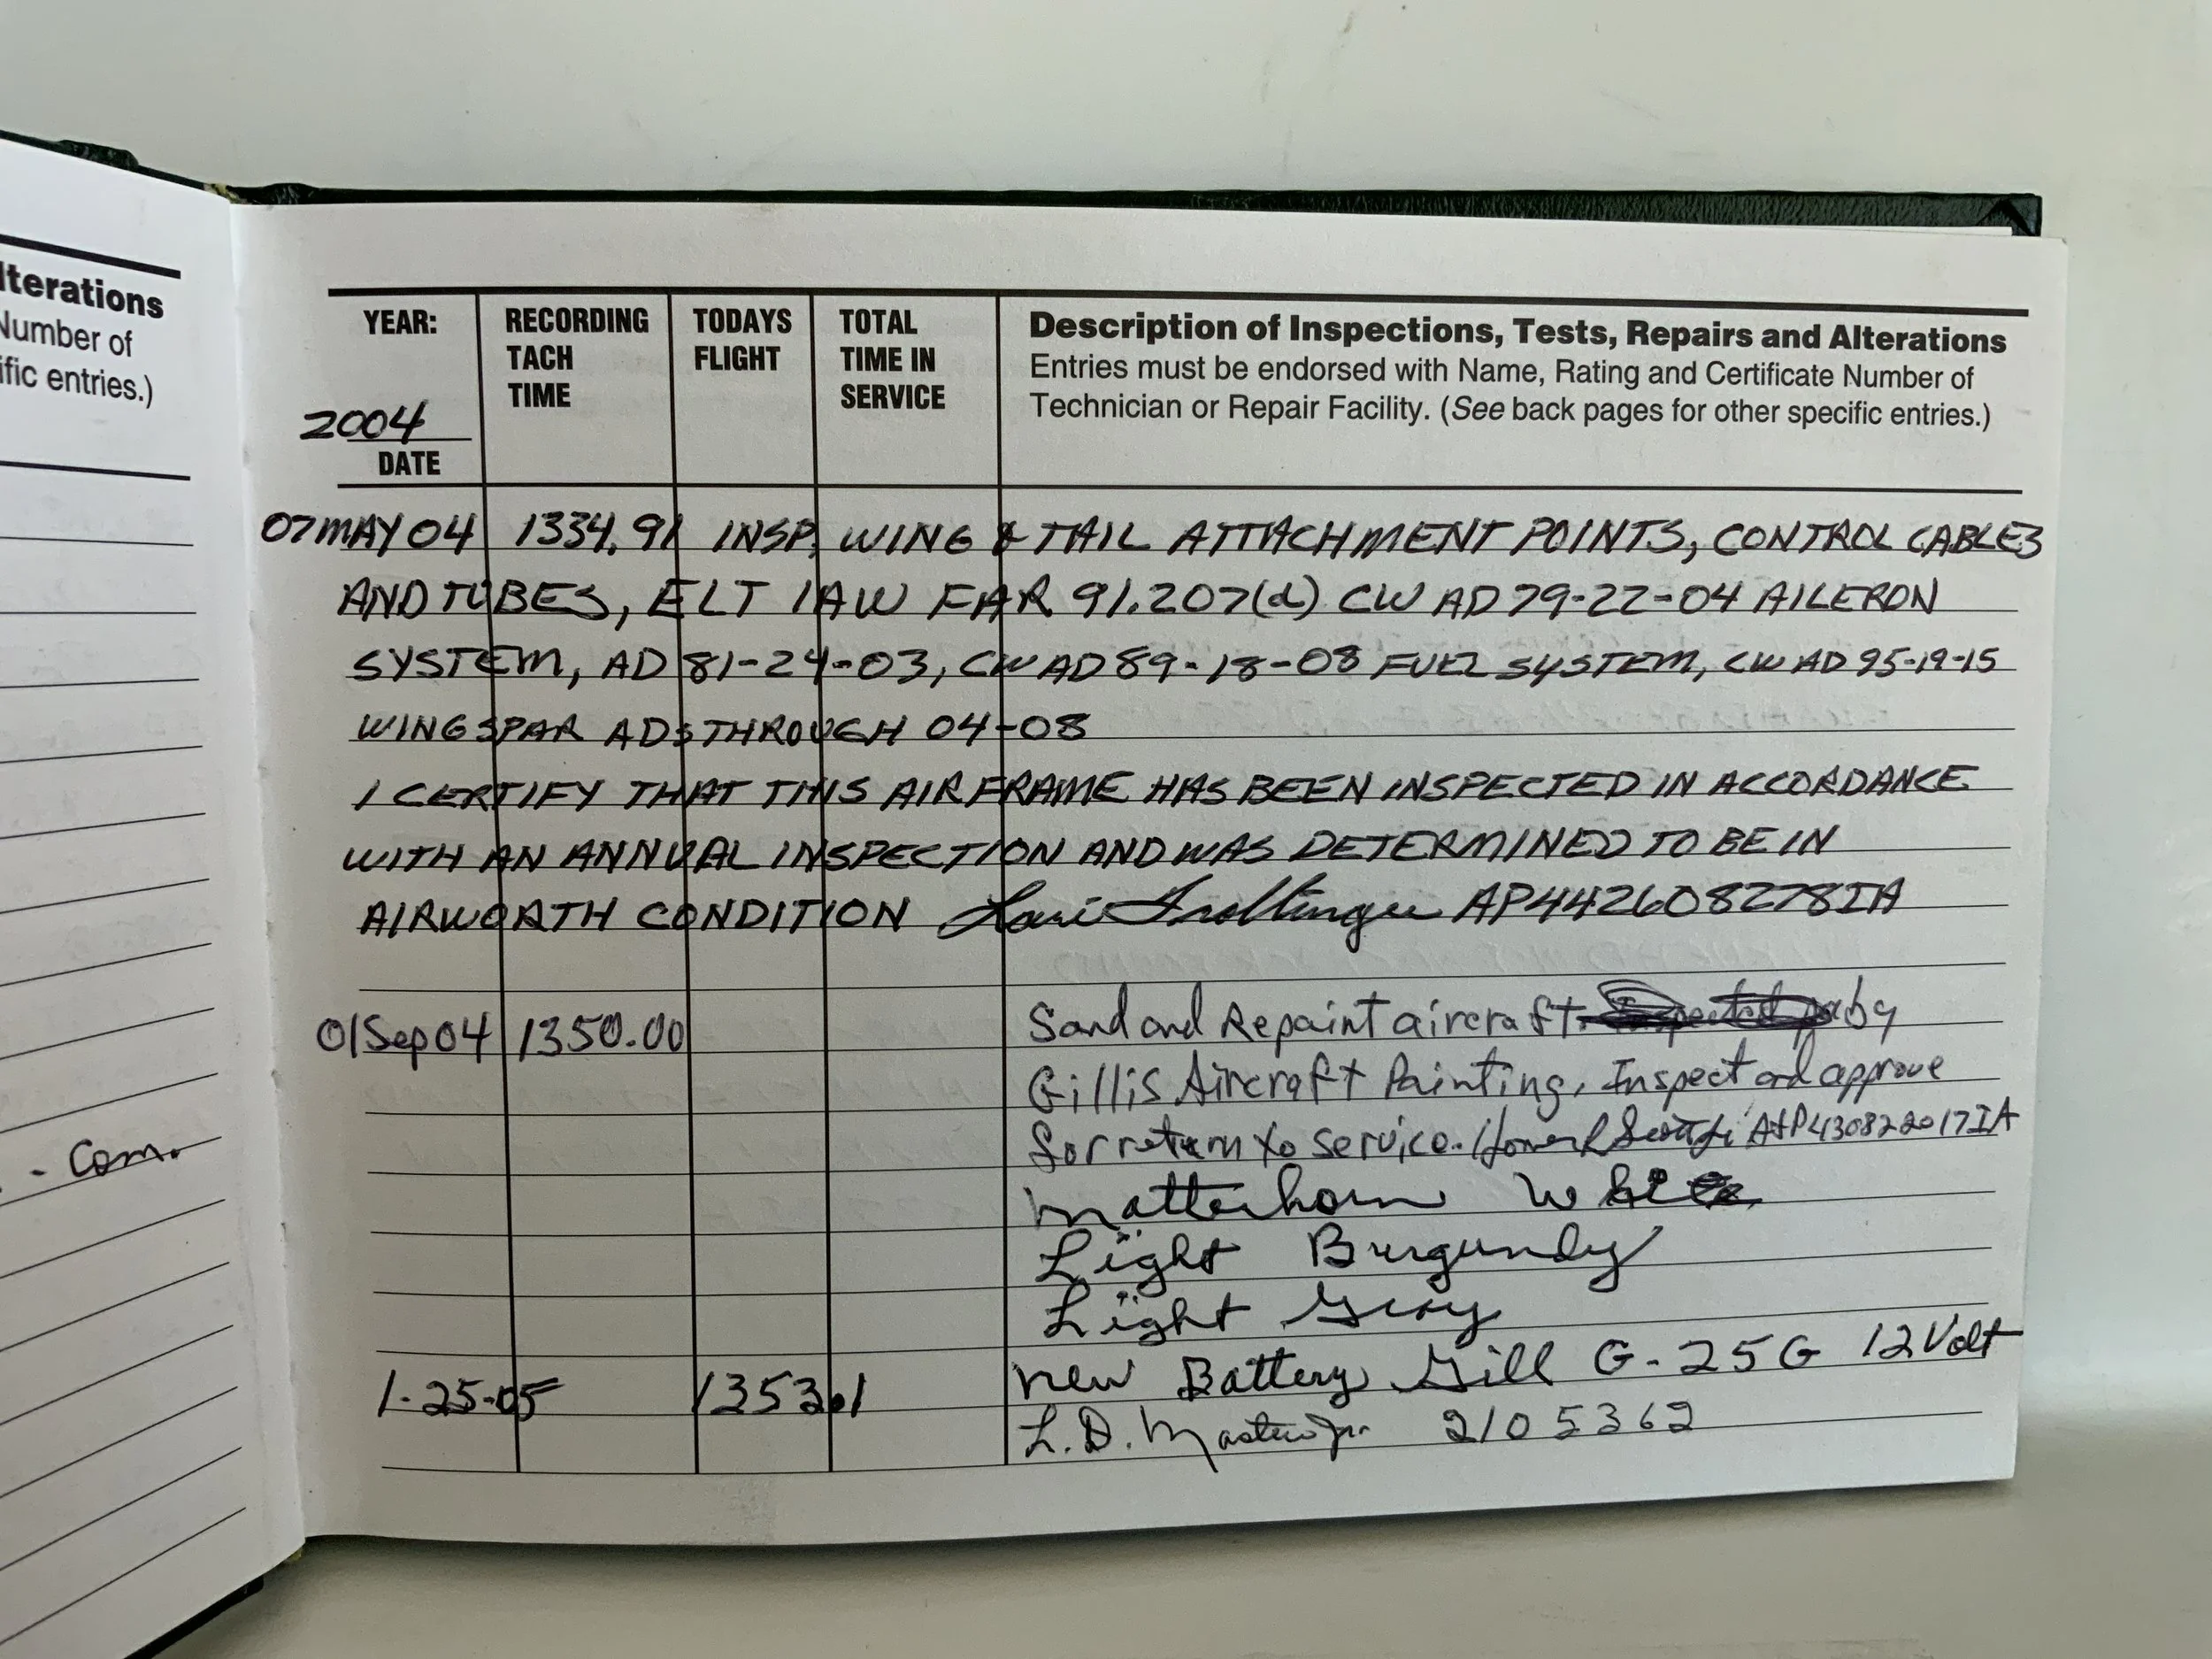 lterations
Number of
ific entries.)
- Com.
YEAR:
2004
DATE
RECORDING
TACH
TIME
TODAYS
FLIGHT
TOTAL
TIME IN
SERVICE
Description of Inspections, Tests, Repairs and Alterations
Entries must be endorsed with Name, Rating and Certificate Number of
Technician or Repair Facility. (See back pages for other specific entries.)
07MAY04 1334.91 INSP. WING & TAIL ATTACHMENT POINTS, CONTROL CABLES
AND TUBES, ELT IAW FAR 91.207(d) CW AD 79-22-04 AILERON
SYSTEM, AD 81-24-03, CW AD 89-18-08 FUEL SYSTEM, CW AD 95-19-15
WINGSPAR ADS THROUGH 04-08
I CERTIFY THAT THIS AIRFRAME HAS BEEN INSPECTED IN ACCORDANCE
WITH AN ANNUAL INSPECTION AND WAS DETERMINED TO BE IN
AIRWORTH CONDITION Lori Trollinger AP442608278IA
01Sep04 1350.00 Sand and Repaint aircraft by
Gillis Aircraft Painting, Inspect and approve
for return to service. A&P430822017IA
Matterhorn White
Light Burgundy
Light Gray
1-25-05 1353.1 New Battery Gill G-25G 12Volt
L.D. Masters Jr. 2105362